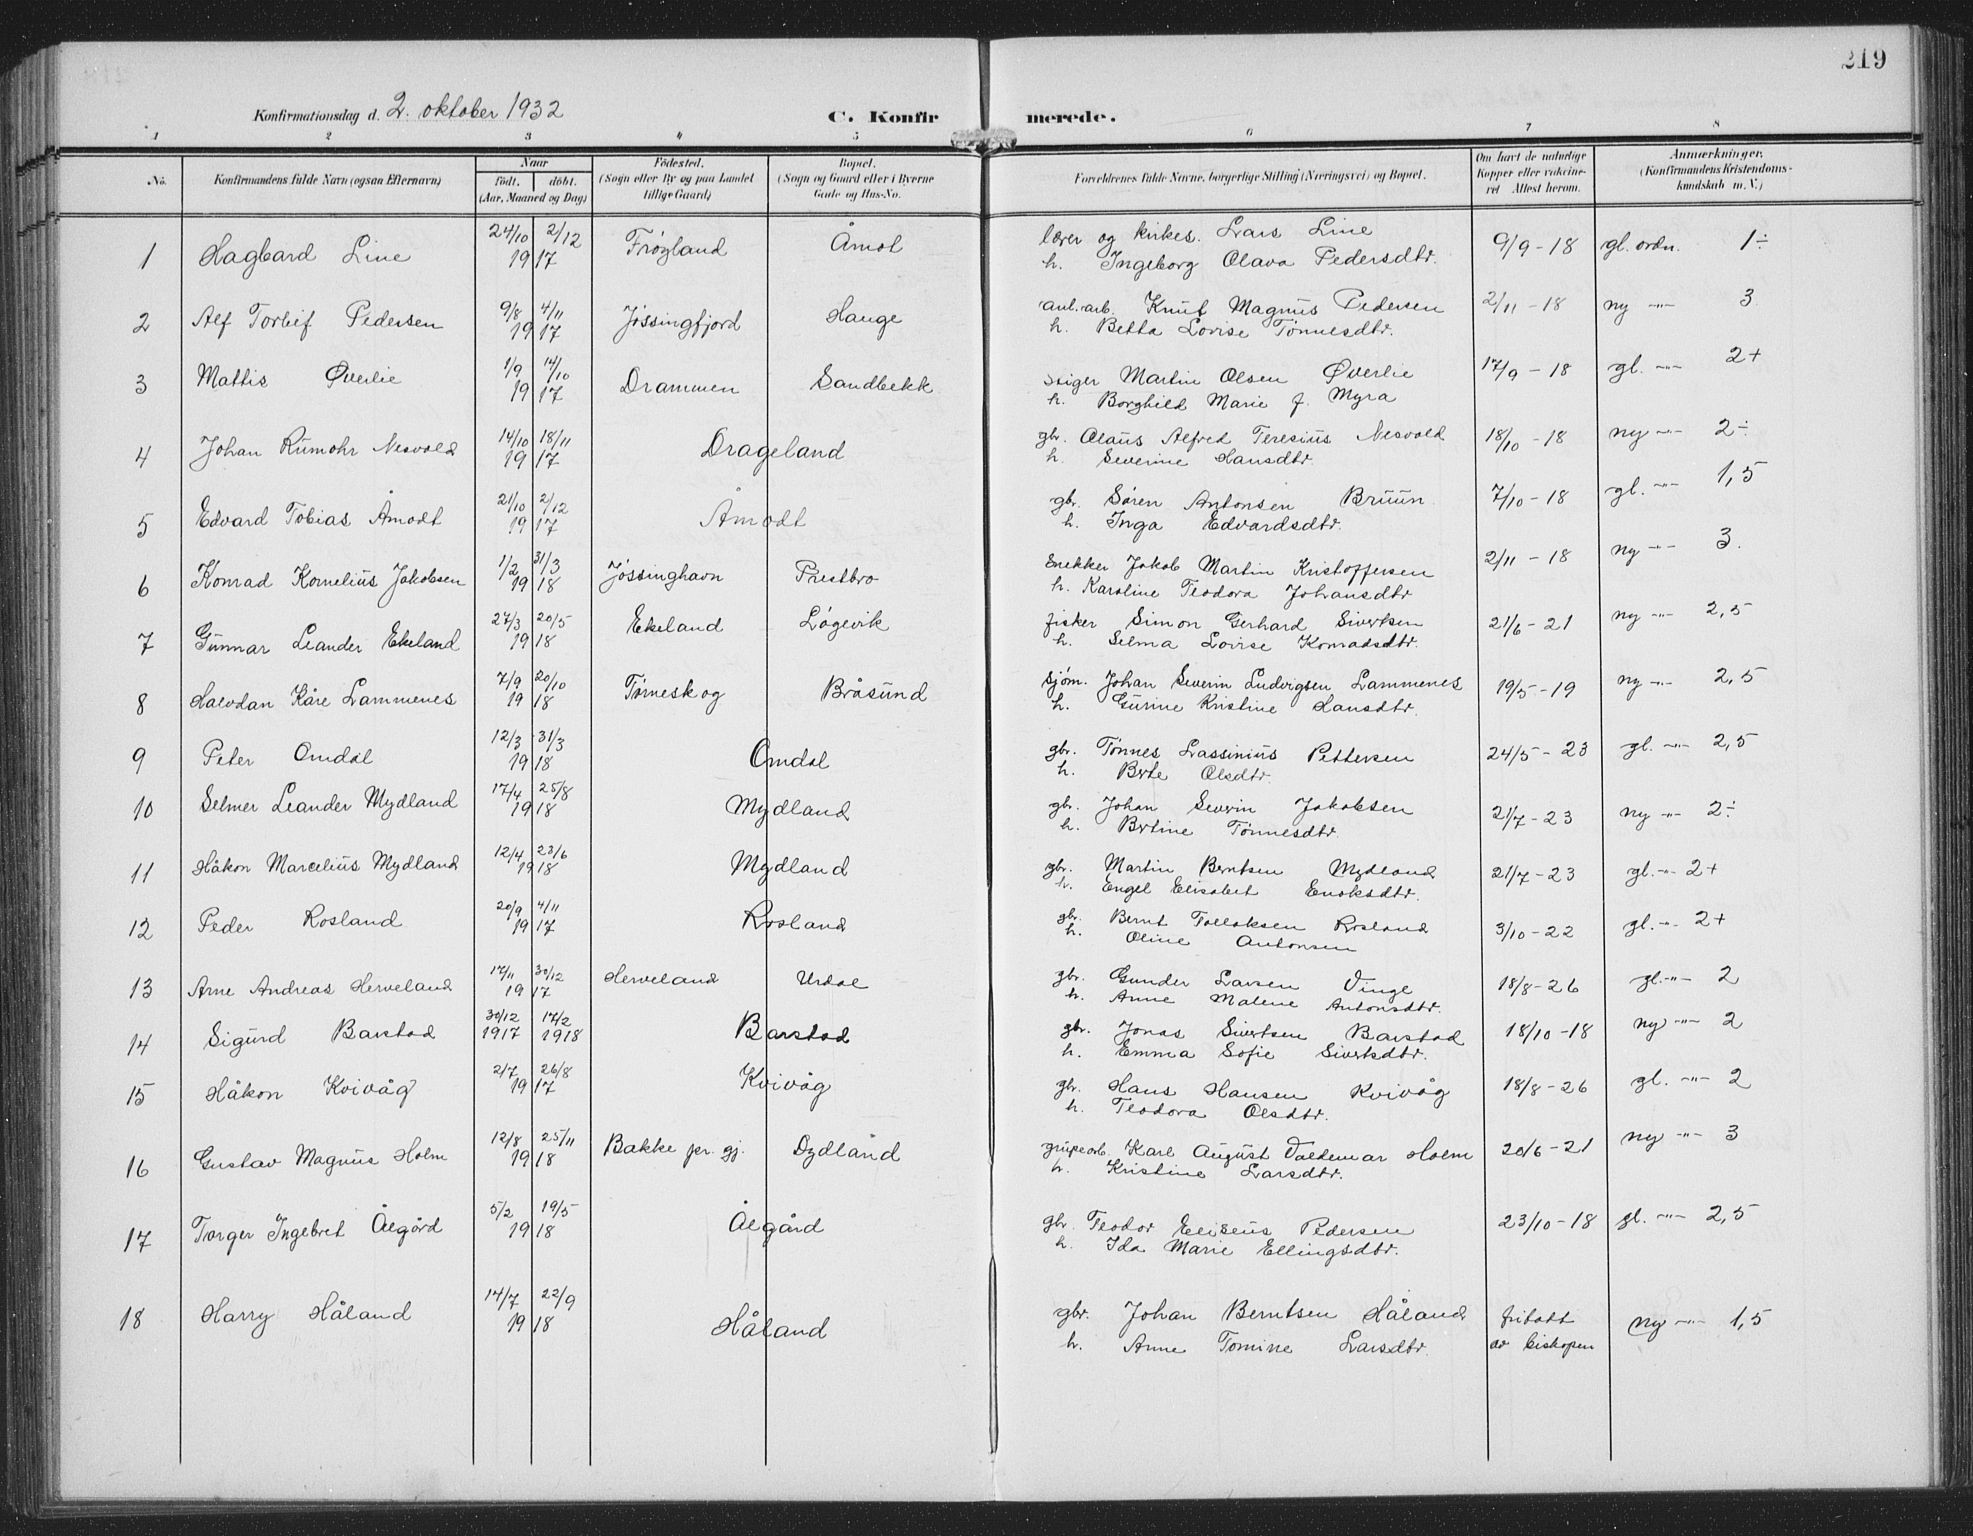 219
Konfirmationsdag d. 2. oktober 1932 C. Konfirmerede.
1 2 3 4 5 6 7 8
No. Konfirmandens fulde Navn (ogsaa Efternavn) Naar födt. döbt. (Aar, Maaned og Dag) Födested. (Sogn eller By og paa Landet tillige Gaard) Bopæl. (Sogn og Gaard eller i Byerne Gade og Hus-No. Forældrenes fulde Navne, borgerlige Stilling (Næringsvei) og Bopæl. Om havt de naturlige Kopper eller vakcineret Attest herom. Anmærkninger. (Konfirmandens Kristendomskundskab m. V.)
1 Hagbard Line 24/10 2/12 1917 Frøyland Åmot lærer og kirkes. Lars Line 9/9-18 gl. ordn. 1÷
h. Ingeborg Olava Pedersdtr.
2 Alf Torleif Pedersen 9/8 4/11 1917 Jøssingfjord Hauge anl.arb. Knut Magnus Pedersen 2/11-18 ny -"- 3
h. Betta Lovise Tønnesdtr.
3 Mattis Øverlie 1/9 14/10 1917 Drammen Sandbekk stiger Martin Olsen Øverlie 17/9-18 gl. -"- 2+
h. Borghild Marie f. Myra
4 Johan Rumohr Nesvold 14/10 18/11 1917 Drageland gbr. Olaus Alfred Teresius Nesvold 18/10-18 ny -"- 2÷
h. Severine Hansdtr.
5 Edvard Tobias Åmodt 21/10 2/12 1917 Åmodt gbr. Søren Antonsen Bruun 7/10-18 gl. -"- 1,5
h. Inga Edvardsdtr.
6 Konrad Kornelius Jakobsen 1/2 31/3 1918 Jøssinghavn Prestbro snekker Jakob Martin Kristoffersen 2/11-18 ny -"- 3.
h. Karoline Teodora Johansdtr
7 Gunnar Leander Ekeland 27/3 20/5 1918 Ekeland Løgevik fisker Simon Gerhard Sivertsen 21/6-21 ny -"- 2,5
h. Selma Lovise Konradsdtr.
8 Halvdan Kåre Lammenes 7/9 20/10 1918 Tørneskog Bråsund sjøm. Johan Severin Ludvigsen Lammenes 19/5-19 ny -"- 2,5
h. Gurine Kristine Hansdtr.
9 Peter Omdal 12/3 31/3 1918 Omdal gbr. Tønnes Lassinius Pettersen 24/5-23 gl. -"- 2,5
h. Brte Olsdtr.
10 Selmer Leander Mydland 17/4 25/8 1918 Mydland gbr. Johan Severin Jakobsen 21/7-23 ny -"- 2÷
h. Brtine Tønnesdtr.
11 Håkon Marcelius Mydland 12/4 23/6 1918 Mydland gbr. Martin Berntsen Mydland 21/7-23 gl. -"- 2+
h. Engel Elisabet Enoksdtr.
12 Peder Rosland 20/9 4/11 1917 Rosland gbr. Bernt Tollaksen Rosland 3/10-22 gl. -"- 2+
h. Oline Antonsen
13 Arne Andreas Herveland 17/11 30/12 1917 Herveland Urdal gbr. Gunder Larsen Vinge 18/8-26 gl. -"- 2
h. Anne Malene Antonsdtr.
14 Sigurd Barstad 30/12 1917 17/2 1918 Barstad gbr. Jonas Sivertsen Barstad 18/10-18 ny -"- 2
h. Emma Sofie Sivertsdtr.
15 Håkon Kvivåg 2/7 26/8 1917 Kvivåg gbr. Hans Hansen Kvivåg 18/8-26 gl. -"- 2
h. Teodora Olsdtr.
16 Gustav Magnus Holm 12/8 25/11 1918 Bakke pr. gj. Dydland grubearb. Karl August Valdemar Holm 20/6-21 ny -"- 3
h. Kristine Larsdtr.
17 Torger Ingebret Ålgård 5/2 19/5 1918 Ålgård gbr. Teodor Eliseus Pedersen 23/10-18 gl. -"- 2,5
h. Ida Marie Ellingsdtr.
18 Harry Håland 14/7 22/9 1918 Håland gbr. Johan Berntsen Håland fritatt ny -"- 1,5
h. Anne Tomine Larsdtr. av biskopen